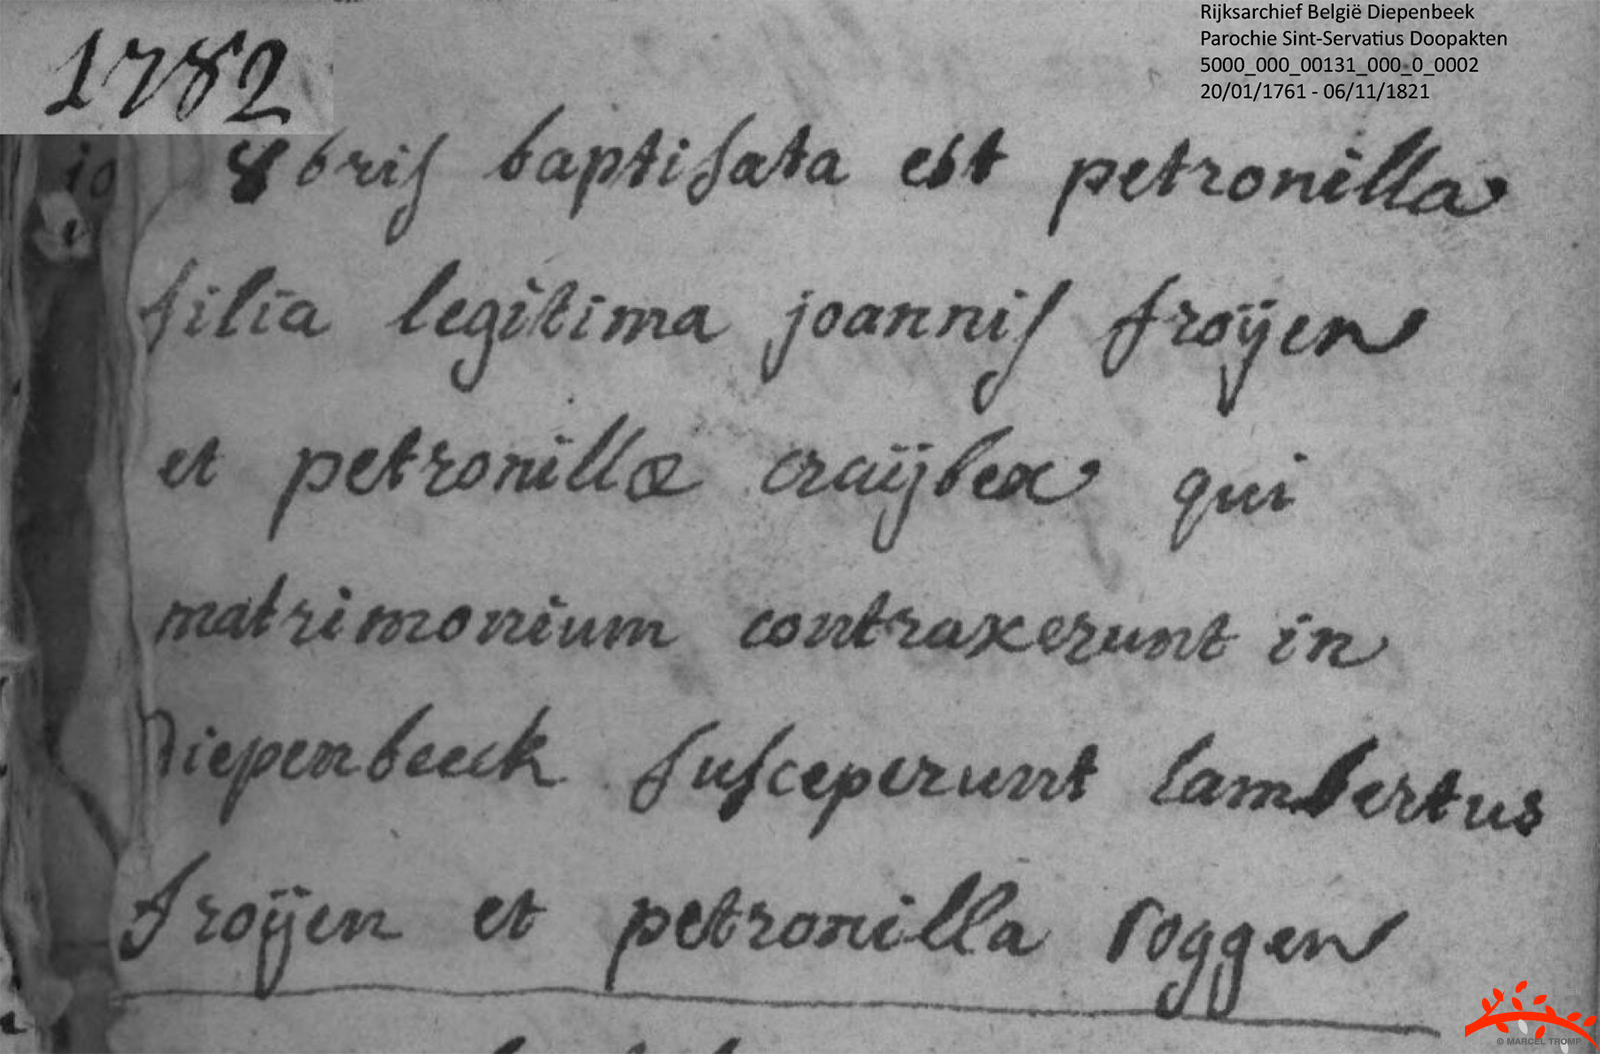 Rijksarchief België Diepenbeek
Parochie Sint-Servatius Doopakten
5000_000_00131_000_0_0002
20/01/1761 - 06/11/1821
1782
10 8bris baptisata est petronilla
filia legitima joannis froÿen
et petronillæ craÿbex qui
matrimonium contraxerunt in
Diepenbeeck susceperunt lambertus
froÿen et petronilla roggen
© MARCEL TROMP